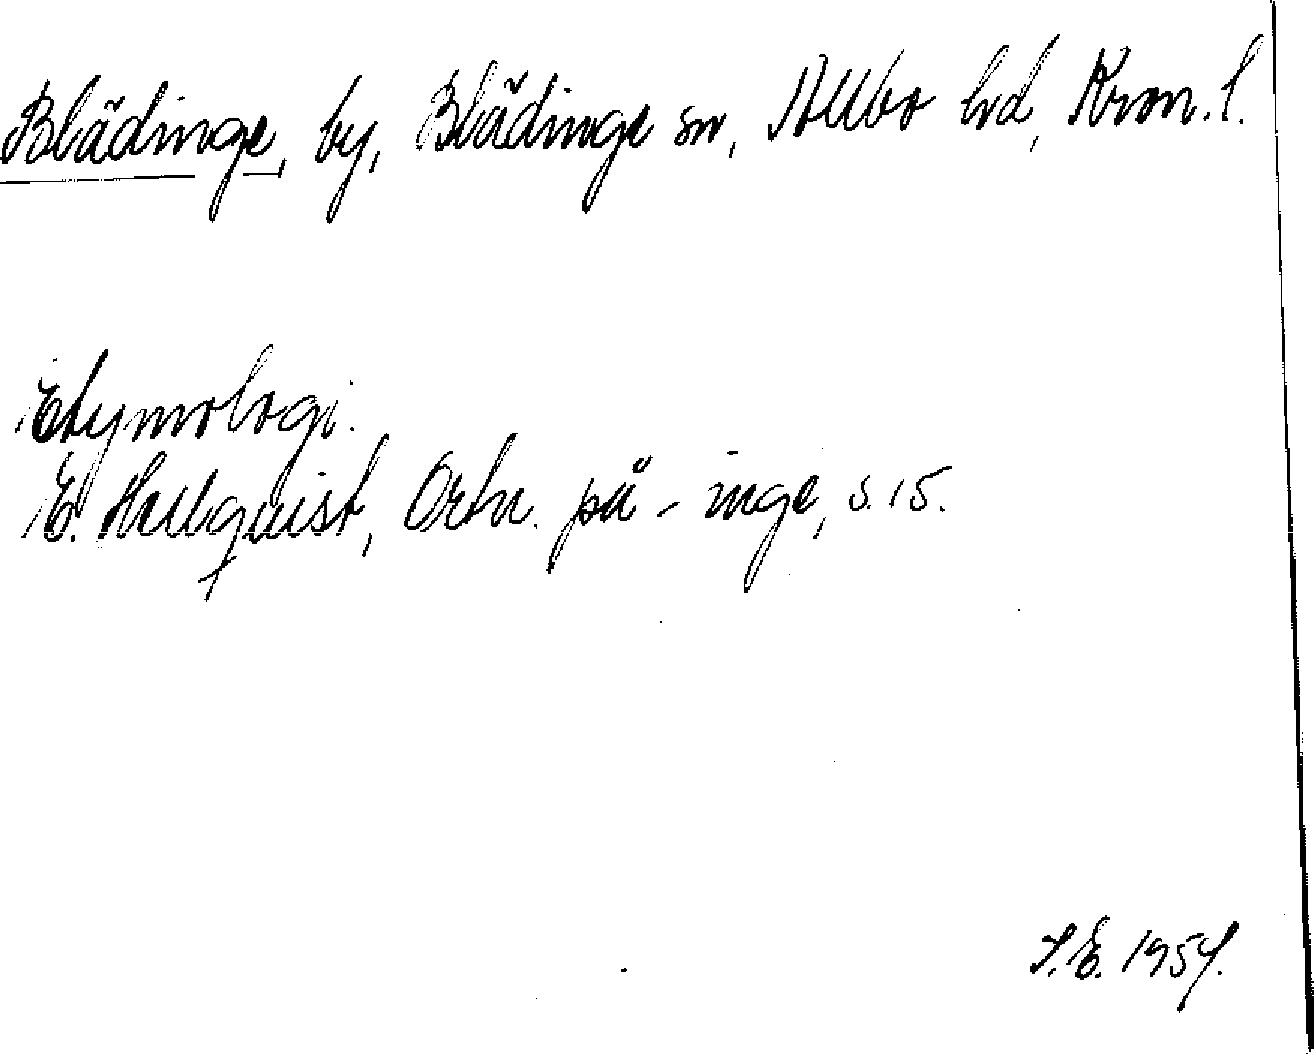 Blädinge, by, Blädinge sn, Allbo hd, Kron. l.
Etymologi.
E. Hellquist, Ortn. på -inge, s. 15.
S.E. 1954.